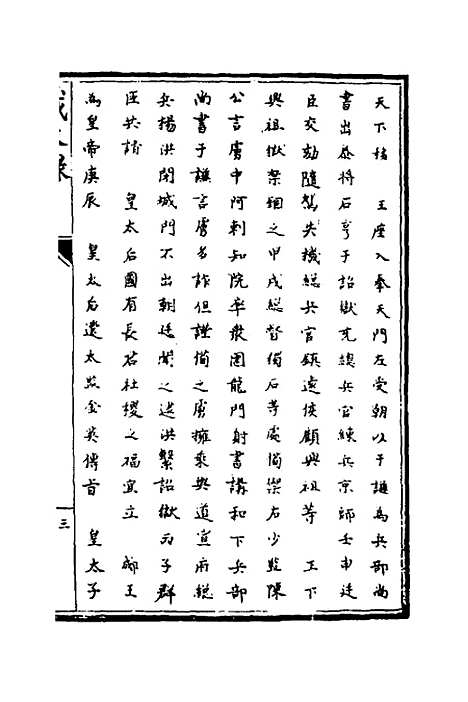 天下移　王座入奉天門左受朝以于謙為兵部尚
書出叅将石亨于詔獄充總兵官練兵京師壬申廷
臣交劾隨駕失機総兵官鎮遠侯顧興祖等　王下
興祖獄禁錮之甲戌総督獨石等處備禦右少監陳
公言虜中阿剌知院率衆圍龍門射書講和下兵部
尚書于謙言虜多詐但謹備之虜擁乘輿道宣府総
兵楊洪閉城門不出朝廷聞之逮洪繫詔獄丙子群
臣共請　皇太后國有長君社稷之福宜立　郕王
為皇帝庚辰　皇太后遣太監金英傳旨　皇太子
三